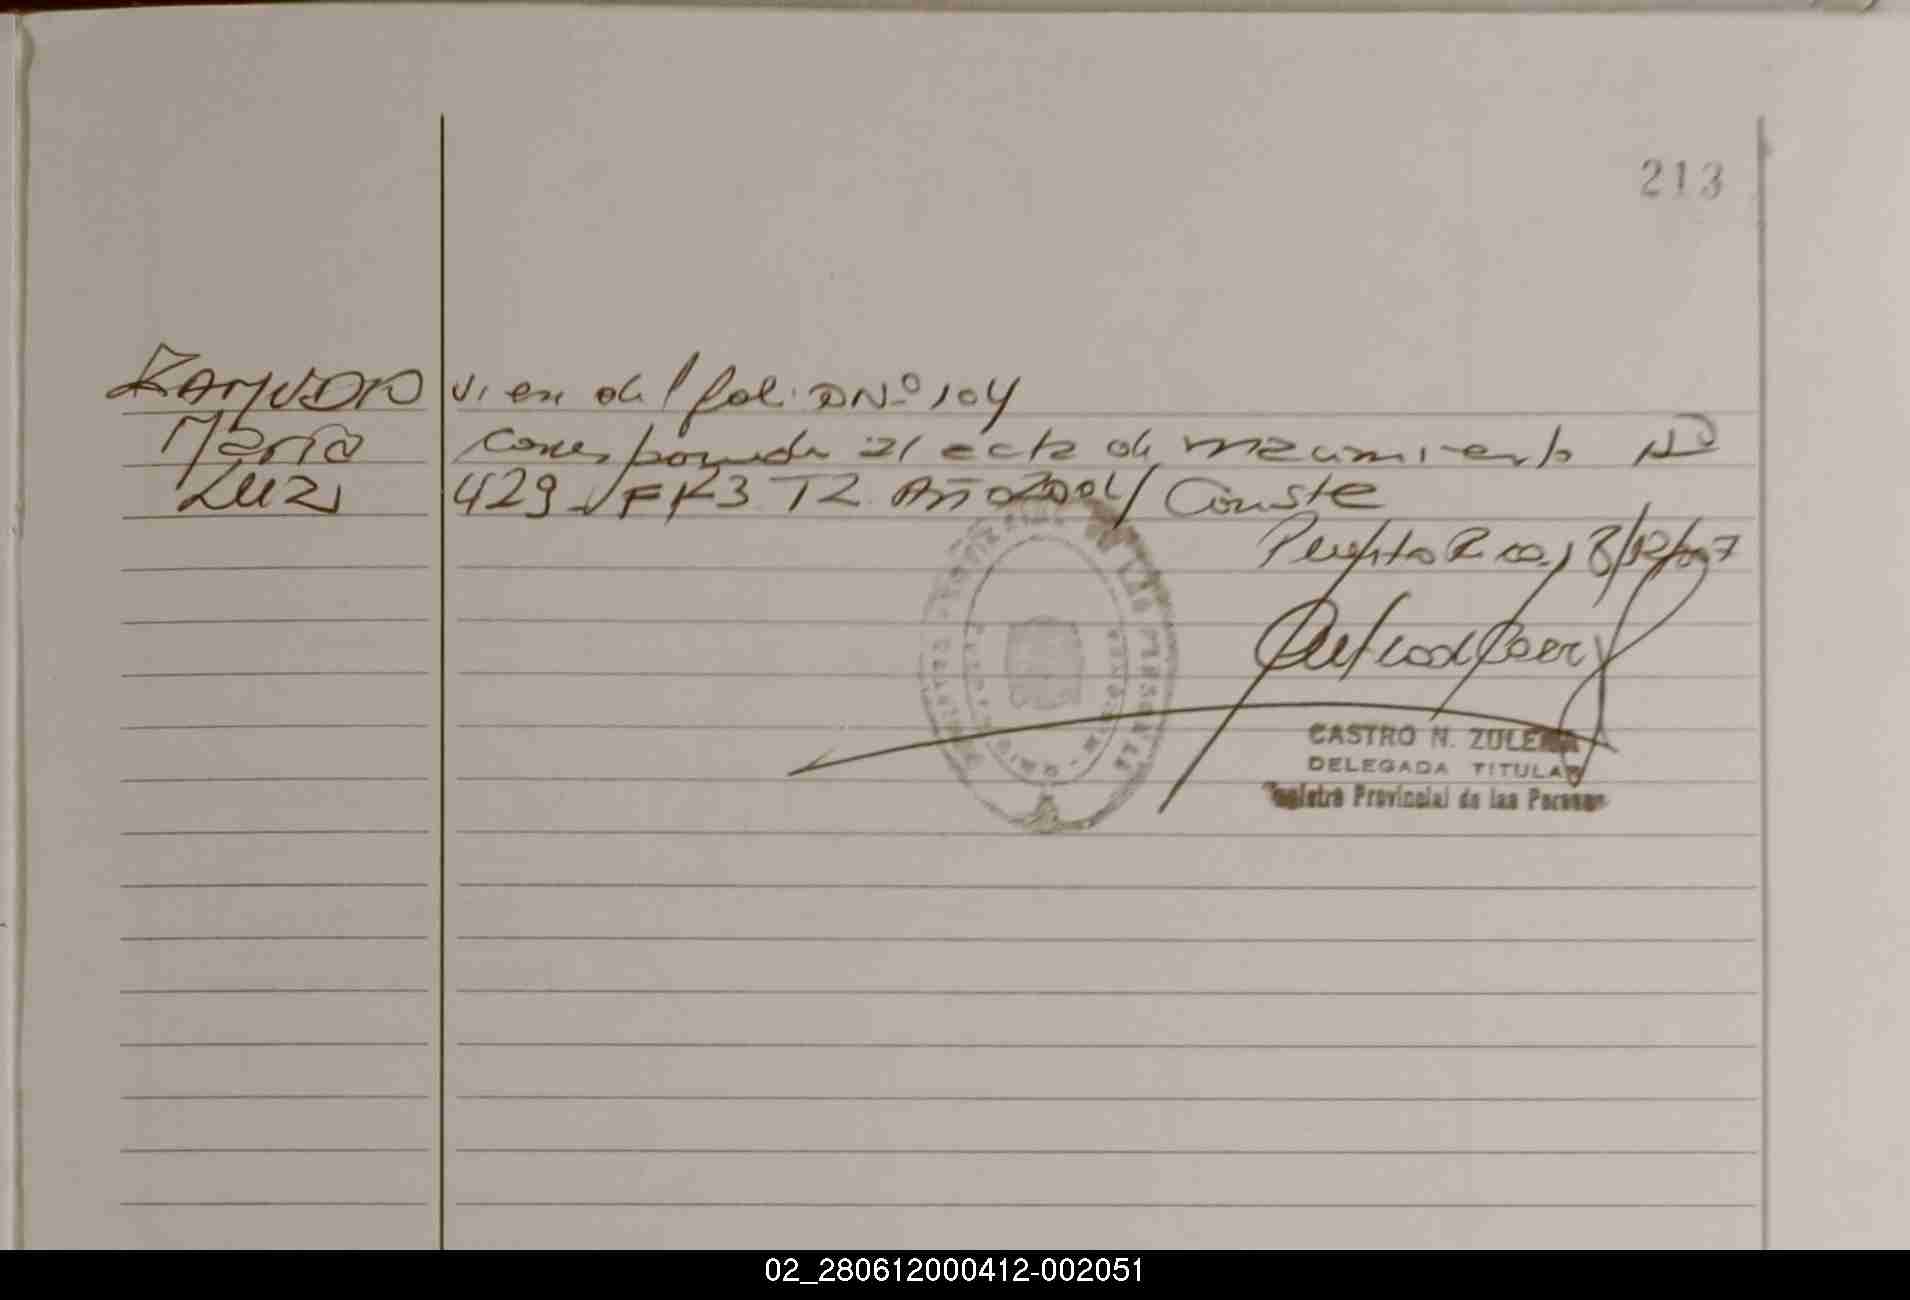 213
ZAMUDIO viene del folio Nº 104
María corresponde al acta de nacimiento Nº
LUZ, 429 FF 73 T2 Año 2004 / Conste
Puerto Rico, 18/12/007
CASTRO N. ZULEMA
DELEGADA TITULAR
Registro Provincial de las Personas
02_280612000412-002051